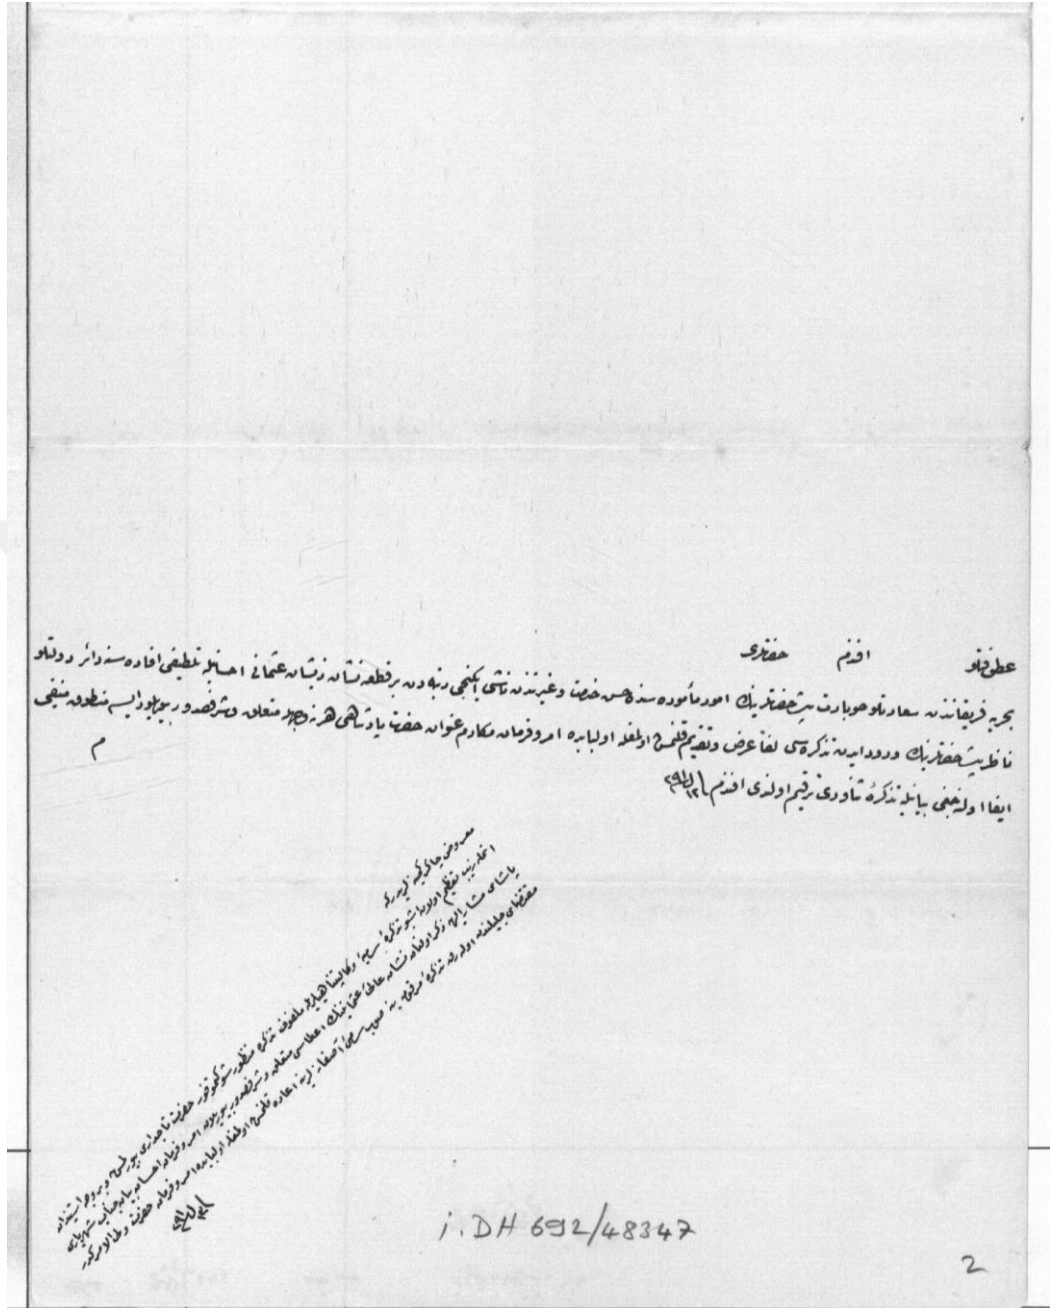 عطوفتلو افندم حضرتلری
بحریه فریقانندن سعادتلو هوبارت پاشا حضرتلرینك امور مأموره‌سنده حسن خدمت و غیرتندن ناشی ایکنجی رتبه‌دن بر قطعه نشان ذیشان عثمانی احسانیله تلطیفی افاده‌سنه دائر دولتلو
ناظر پاشا حضرتلرینك ورود ایدن تذکره‌سی لفاً عرض و تقدیم قلنمش اولمغله اولبابده امر و فرمان مکارم عنوان حضرت پادشاهی هر نه وجهله متعلق و شرفصدور بیوریلور ایسه منطوق منیفی
ایفا اوله‌جغی بیانیله تذکرۀ ثناوری ترقیم اولندی افندم
م
معروض چاکر کمینه‌لریدر که
اولان اشبو تذکرۀ سامیۀ وکالتپناهیلریله ملفوف تذکره منظور شوکتموفور حضرت تاجداری بیورلمش و بر وجه استیذان
پاشای مشار الیهه ذکر اولنان نشان عالئ عثمانینك اعطاسی متعلق و شرفصدور بیوریلان امر و فرمان احسان بیان جناب شهریاری
مقتضای جلیلندن اوله‌رق تذکرۀ مرقومه ینه صوب سامئ آصفانه‌لرینه اعاده قلنمش اولمغله اولبابده امر و فرمان حضرت ولی الامرکدر
İ.DH 692/48347
2